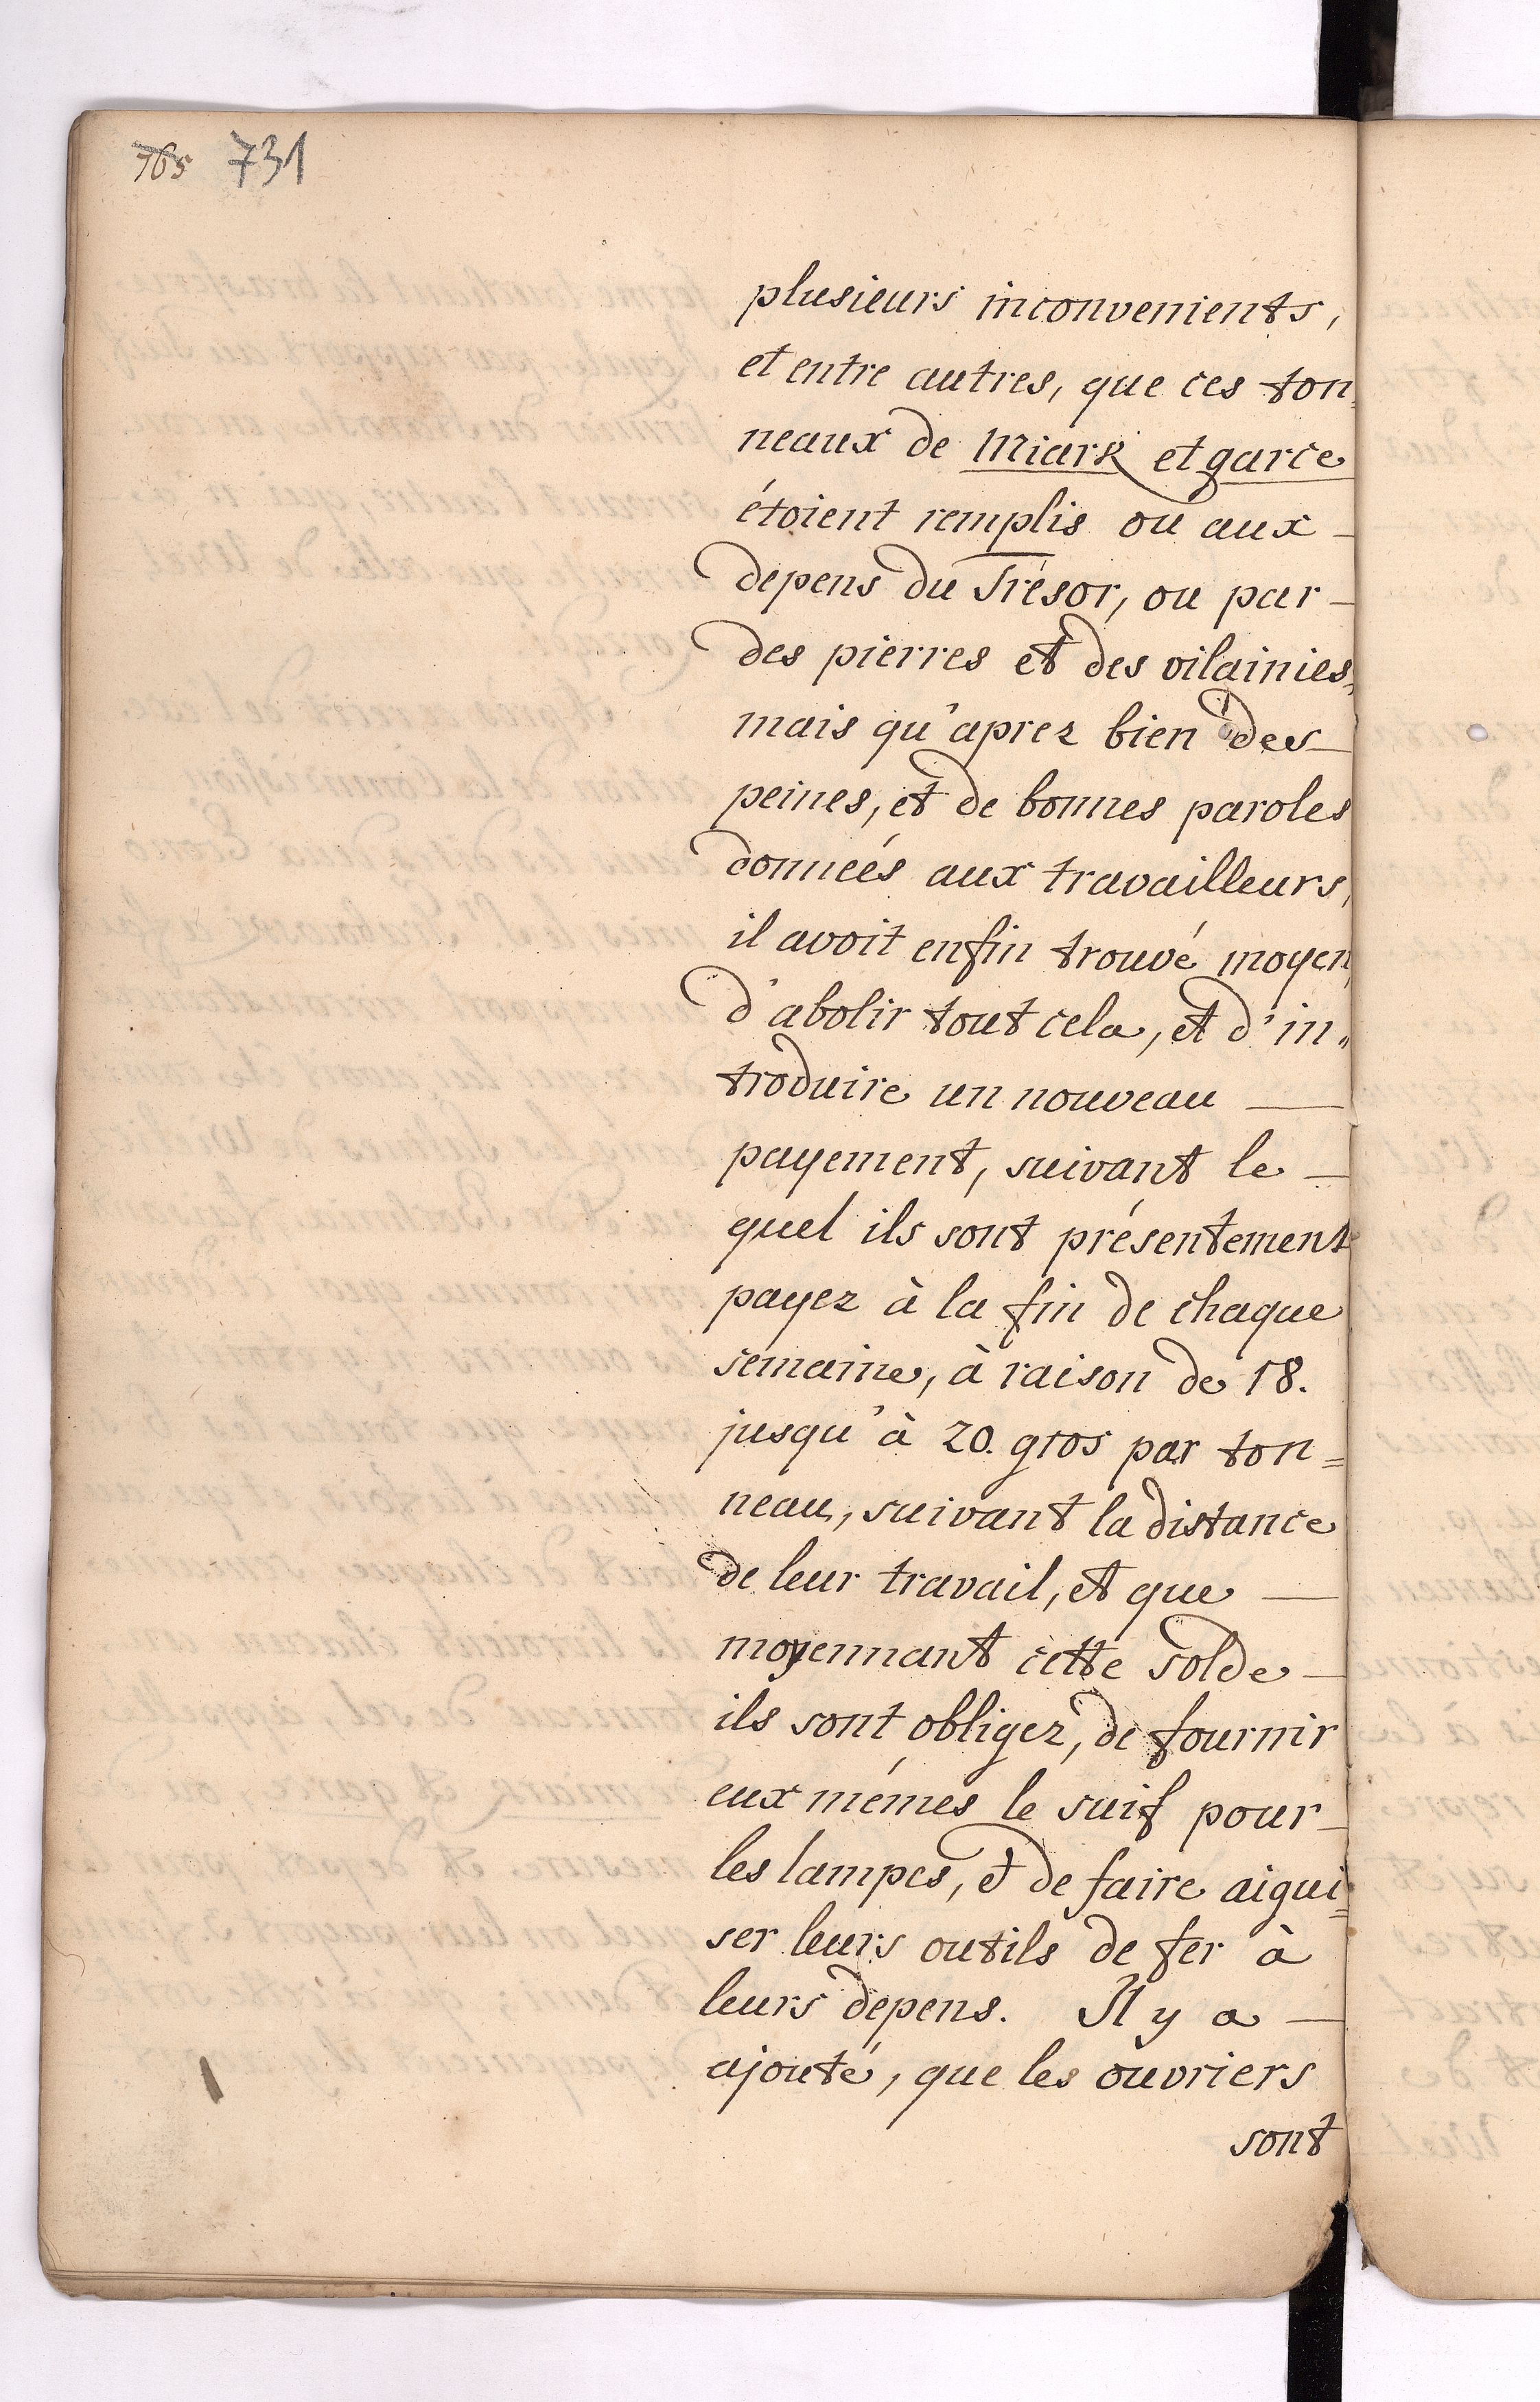 765 731
plusieurs inconvenients,
et entre autres, que ces ton
neaux de Miark et garce
étoient remplis ou aux —
depens du Trésor, ou par —
des pierres et des vilainies,
mais qu'aprez bien des —
peines, et de bonnes paroles
donneés aux travailleurs,
il avoit enfin trouvé moyen,
d'abolir tout cela, et d'in„
troduire un nouveau —
payement, suivant le —
quel ils sont présentement
payez à la fin de chaque
semaine, à raison de 18.
jusqu'à 20. gros par ton=
neau, suivant la distance
de leur travail, et que —
moyennant cette solde —
ils sont obligez, de fournir
eux mémes le suif pour —
les lampes, et de faire aigui=
ser leurs outils de fer à
leurs depens. Il y a —
ajouté, que les ouvriers
sont